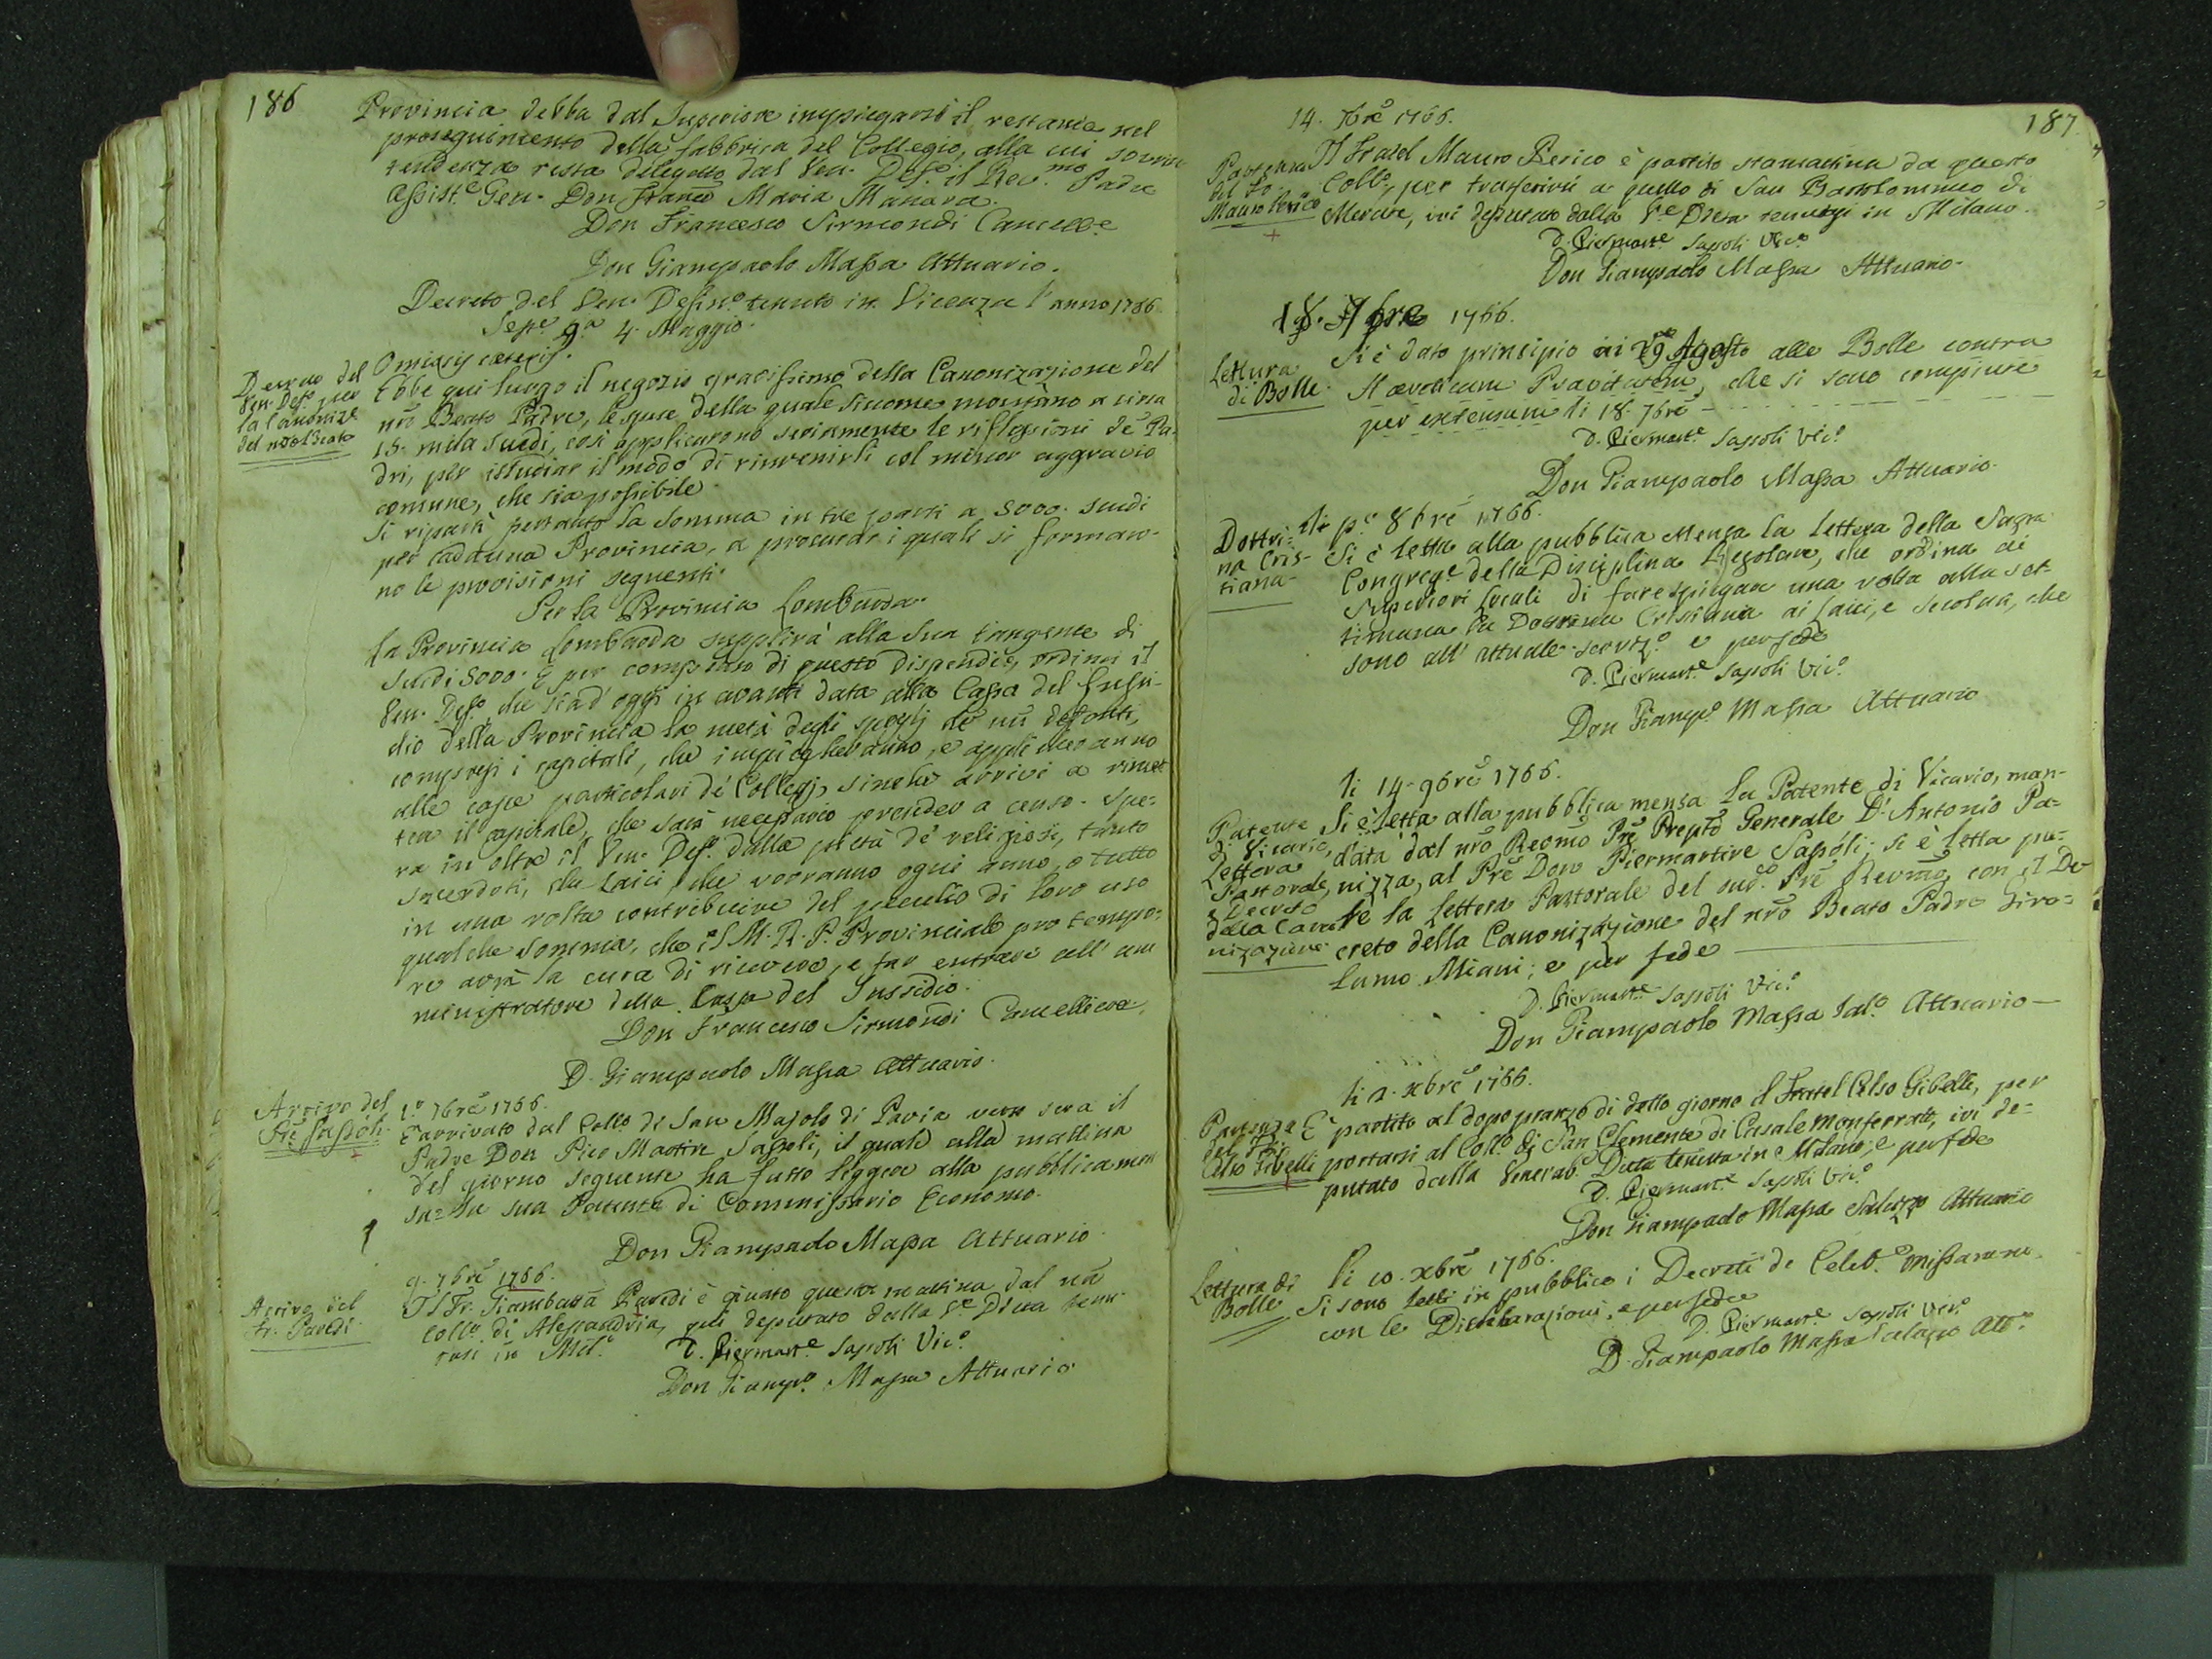 186
Provincia debba dal Superiore impiegarsi il restante nel
proseguimento della fabbrica del Collegio, alla cui sovrin
tendenza resta delegato dal Ven. Defo. il Rev.mo Padre
Assist.e Gen. Don Franco Maria Manara.
Don Francesco Sirmondi Cancell.e
Don Giampaolo Massa Attuario.
Decreto del Ven. Defin.o tenuto in Vicenza l'anno 1766
Sess.e 9.a 4. Maggio.
Decreto del
Ven. Defo. per
la Canoniz.e
del nro Beato
Omissis caeteris.
Ebbe qui luogo il negozio gravissimo della Canonizazione del
nro Beato Padre, le spese della quale siccome montano a circa
15. mila scudi, così applicarono seriamente le riflessioni de' Pa-
dri, per istudiar il modo di rinvenirli col minor aggravio
comune, che sia possibile.
Si ripartì pertanto la somma in tre parti a 5000. scudi
per cadauna Provincia, a procurar i quali si formaro-
no le provisioni seguenti.
Per la Provincia Lombarda.
La Provincia Lombarda supplirà alla sua tangente di
scudi 5000. E per compenso di questo dispendio, ordina il
Ven. Defo. che sia d'oggi in avanti data alla Cassa del sussi-
dio della Provincia la metà degli spogli de' nri defonti,
compresi i capitali, che impiegheranno, e applicheranno
alle casse particolari de' Collegj, sinchè arrivi a rimet
tere il capitale, che sarà necessario prender a censo. Spe-
ra in oltre il Ven. Defo. dalla pietà de' religiosi, tanto
sacerdoti, che Laici, che vorranno ogni anno, o tutto
in una volta contribuire del peculio di loro uso
qualche somma, che il M. R. P. Provinciale pro tempo-
re avrà la cura di ricevere, e far entrare all' am
ministratore della Cassa del Sussidio.
Don Francesco Sirmondi Cancelliere.
D. Giampaolo Massa Attuario.
Arrivo del
Pre Sapoli.
1.o 7bre 1766.
È arrivato dal Collo di San Majolo di Pavia verso sera il
Padre Don Pier Martire Sapoli, il quale alla mattina
del giorno seguente ha fatto leggere alla pubblica men
sa la sua Patente di Commissario Economo.
Don Giampaolo Massa Attuario.
Arrivo del
Fr. Parodi.
9. 7bre 1766.
Il Fr. Giambatta Parodi è giunto questa mattina dal nro
Collo di Alessandria, qui deputato dalla V.e Dieta tenu-
tasi in Mil.o
D. Piermart.e Sapoli Vic.o
Don Giamp.o Massa Attuario
187.
14. 7bre 1766.
Partenza
del Fr.
Mauro Perico
Il Fratel Mauro Perico è partito stamattina da questo
Collo, per trasferirsi a quello di San Bartolommeo di
Merate, ivi deputato dalla V.e Dieta tenutasi in Milano.
D. Piermart.e Sapoli Vic.o
Don Giampaolo Massa Attuario.
18. 7bre 1766.
Lettura
di Bolle.
Si è dato principio ai 29 Agosto alle Bolle contra
Haereticam Pravitatem, che si sono compiute
per extensum li 18. 7bre
D. Piermart.e Sapoli Vic.o
Don Giampaolo Massa Attuario.
Dottri-
na Cris-
tiana
Li p.o 8bre 1766.
Si è letta alla pubblica Mensa la lettera della Sagra
Congreg.e della Disciplina Regolare, che ordina ai
Superiori locali di fare spiegare una volta alla set-
timana la Dottrina Cristiana ai Laici, e Secolari, che
sono all' attuale serviz.o e per fede
D. Piermart.e Sapoli Vic.o
Don Giamp.o Massa Attuario
li 14. 9bre 1766.
Patente
di Vicario,
Lettera
Pastorale,
e Decreto
della Cano
nizazione.
Si è letta alla pubblica mensa la Patente di Vicario, man-
data dal nro Revmo Pre Prepto Generale D. Antonio Pa-
nizza, al Pre Don Piermartire Sapóli; si è letta pu-
re la lettera Pastorale del sud.o Pre Revmo, con il De-
creto della Canonizazione del nro Beato Padre Giro-
lamo Miani; e per fede
D. Piermart.e Sapoli Vic.o
Don Giampaolo Massa Sal.o Attuario
li 2. xbre 1766.
Partenza
del Fr.
Celso Gibelli
È partito al dopo pranzo di detto giorno il Fratel Celso Gibelli, per
portarsi al Coll.o di San Clemente di Casale Monferrato, ivi de-
putato dalla Venerab.e Dieta tenuta in Milano; e per fede
D. Piermart.e Sapoli Vic.o
Don Giampaolo Massa Saluzzo Attuario
Lettura di
Bolle
Li 10. xbre 1766.
Si sono letti in pubblico i Decreti de Celeb.e Missarum
con le Dichiarazioni, e per fede
D. Piermart.e Sapoli Vic.o
D. Giampaolo Massa Att.o